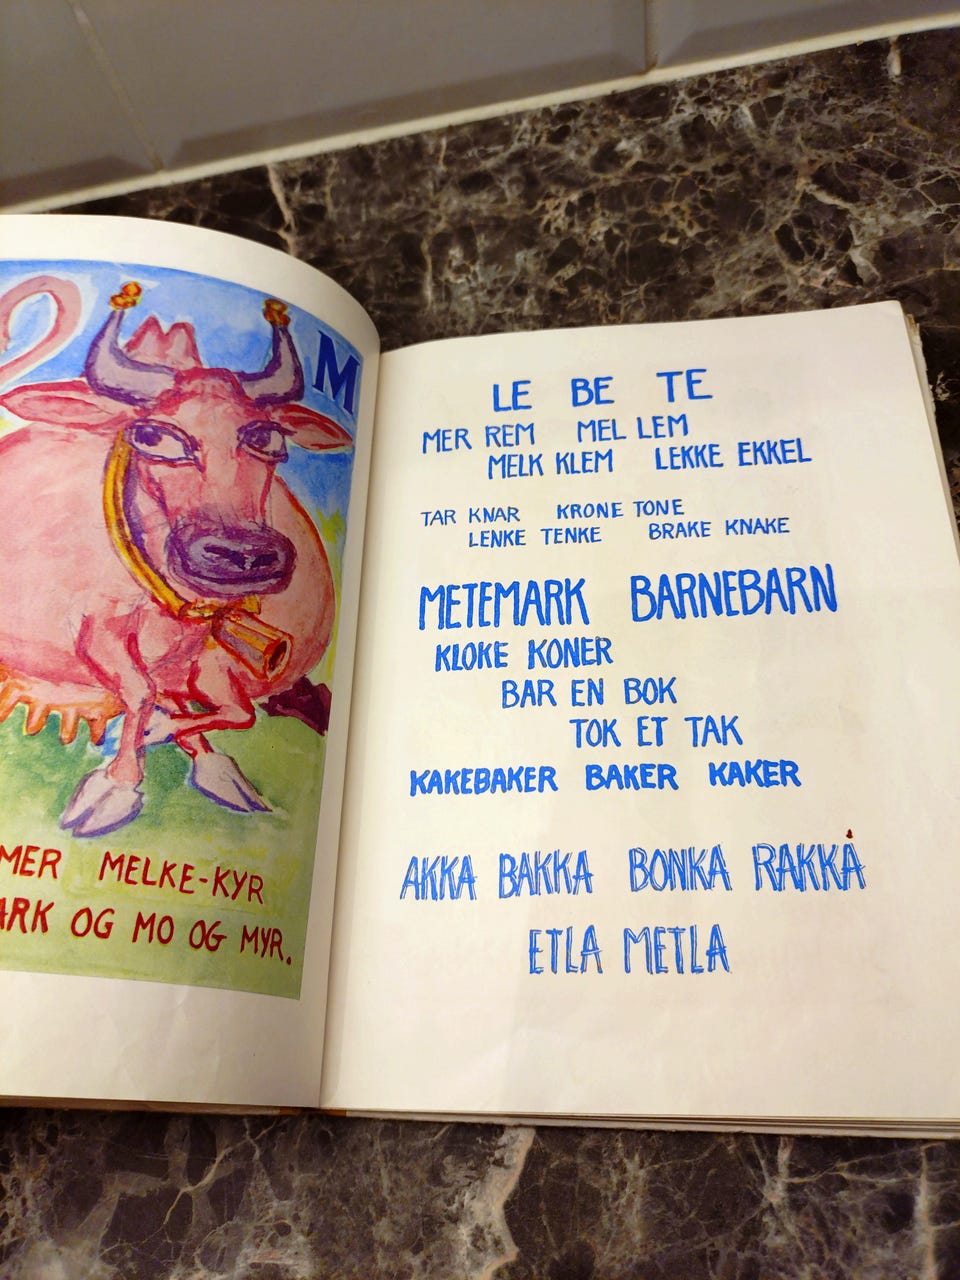 M
MER MELKE-KYR
ARK OG MO OG MYR.
LE BE TE
MER REM MEL LEM
MELK KLEM LEKKE EKKEL
TAR KNAR KRONE TONE
LENKE TENKE BRAKE KNAKE
METEMARK BARNEBARN
KLOKE KONER
BAR EN BOK
TOK ET TAK
KAKEBAKER BAKER KAKER
AKKA BAKKA BONKA RAKKA
ETLA METLA